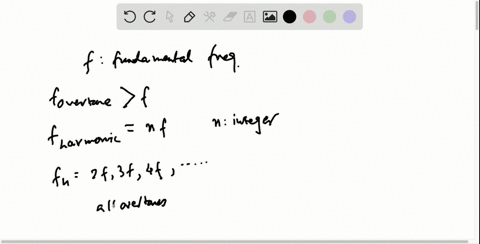 f : fundamental freq.
f overtone > f
f harmonic = n f n: integer
fn = 2f, 3f, 4f, .....
all overtones